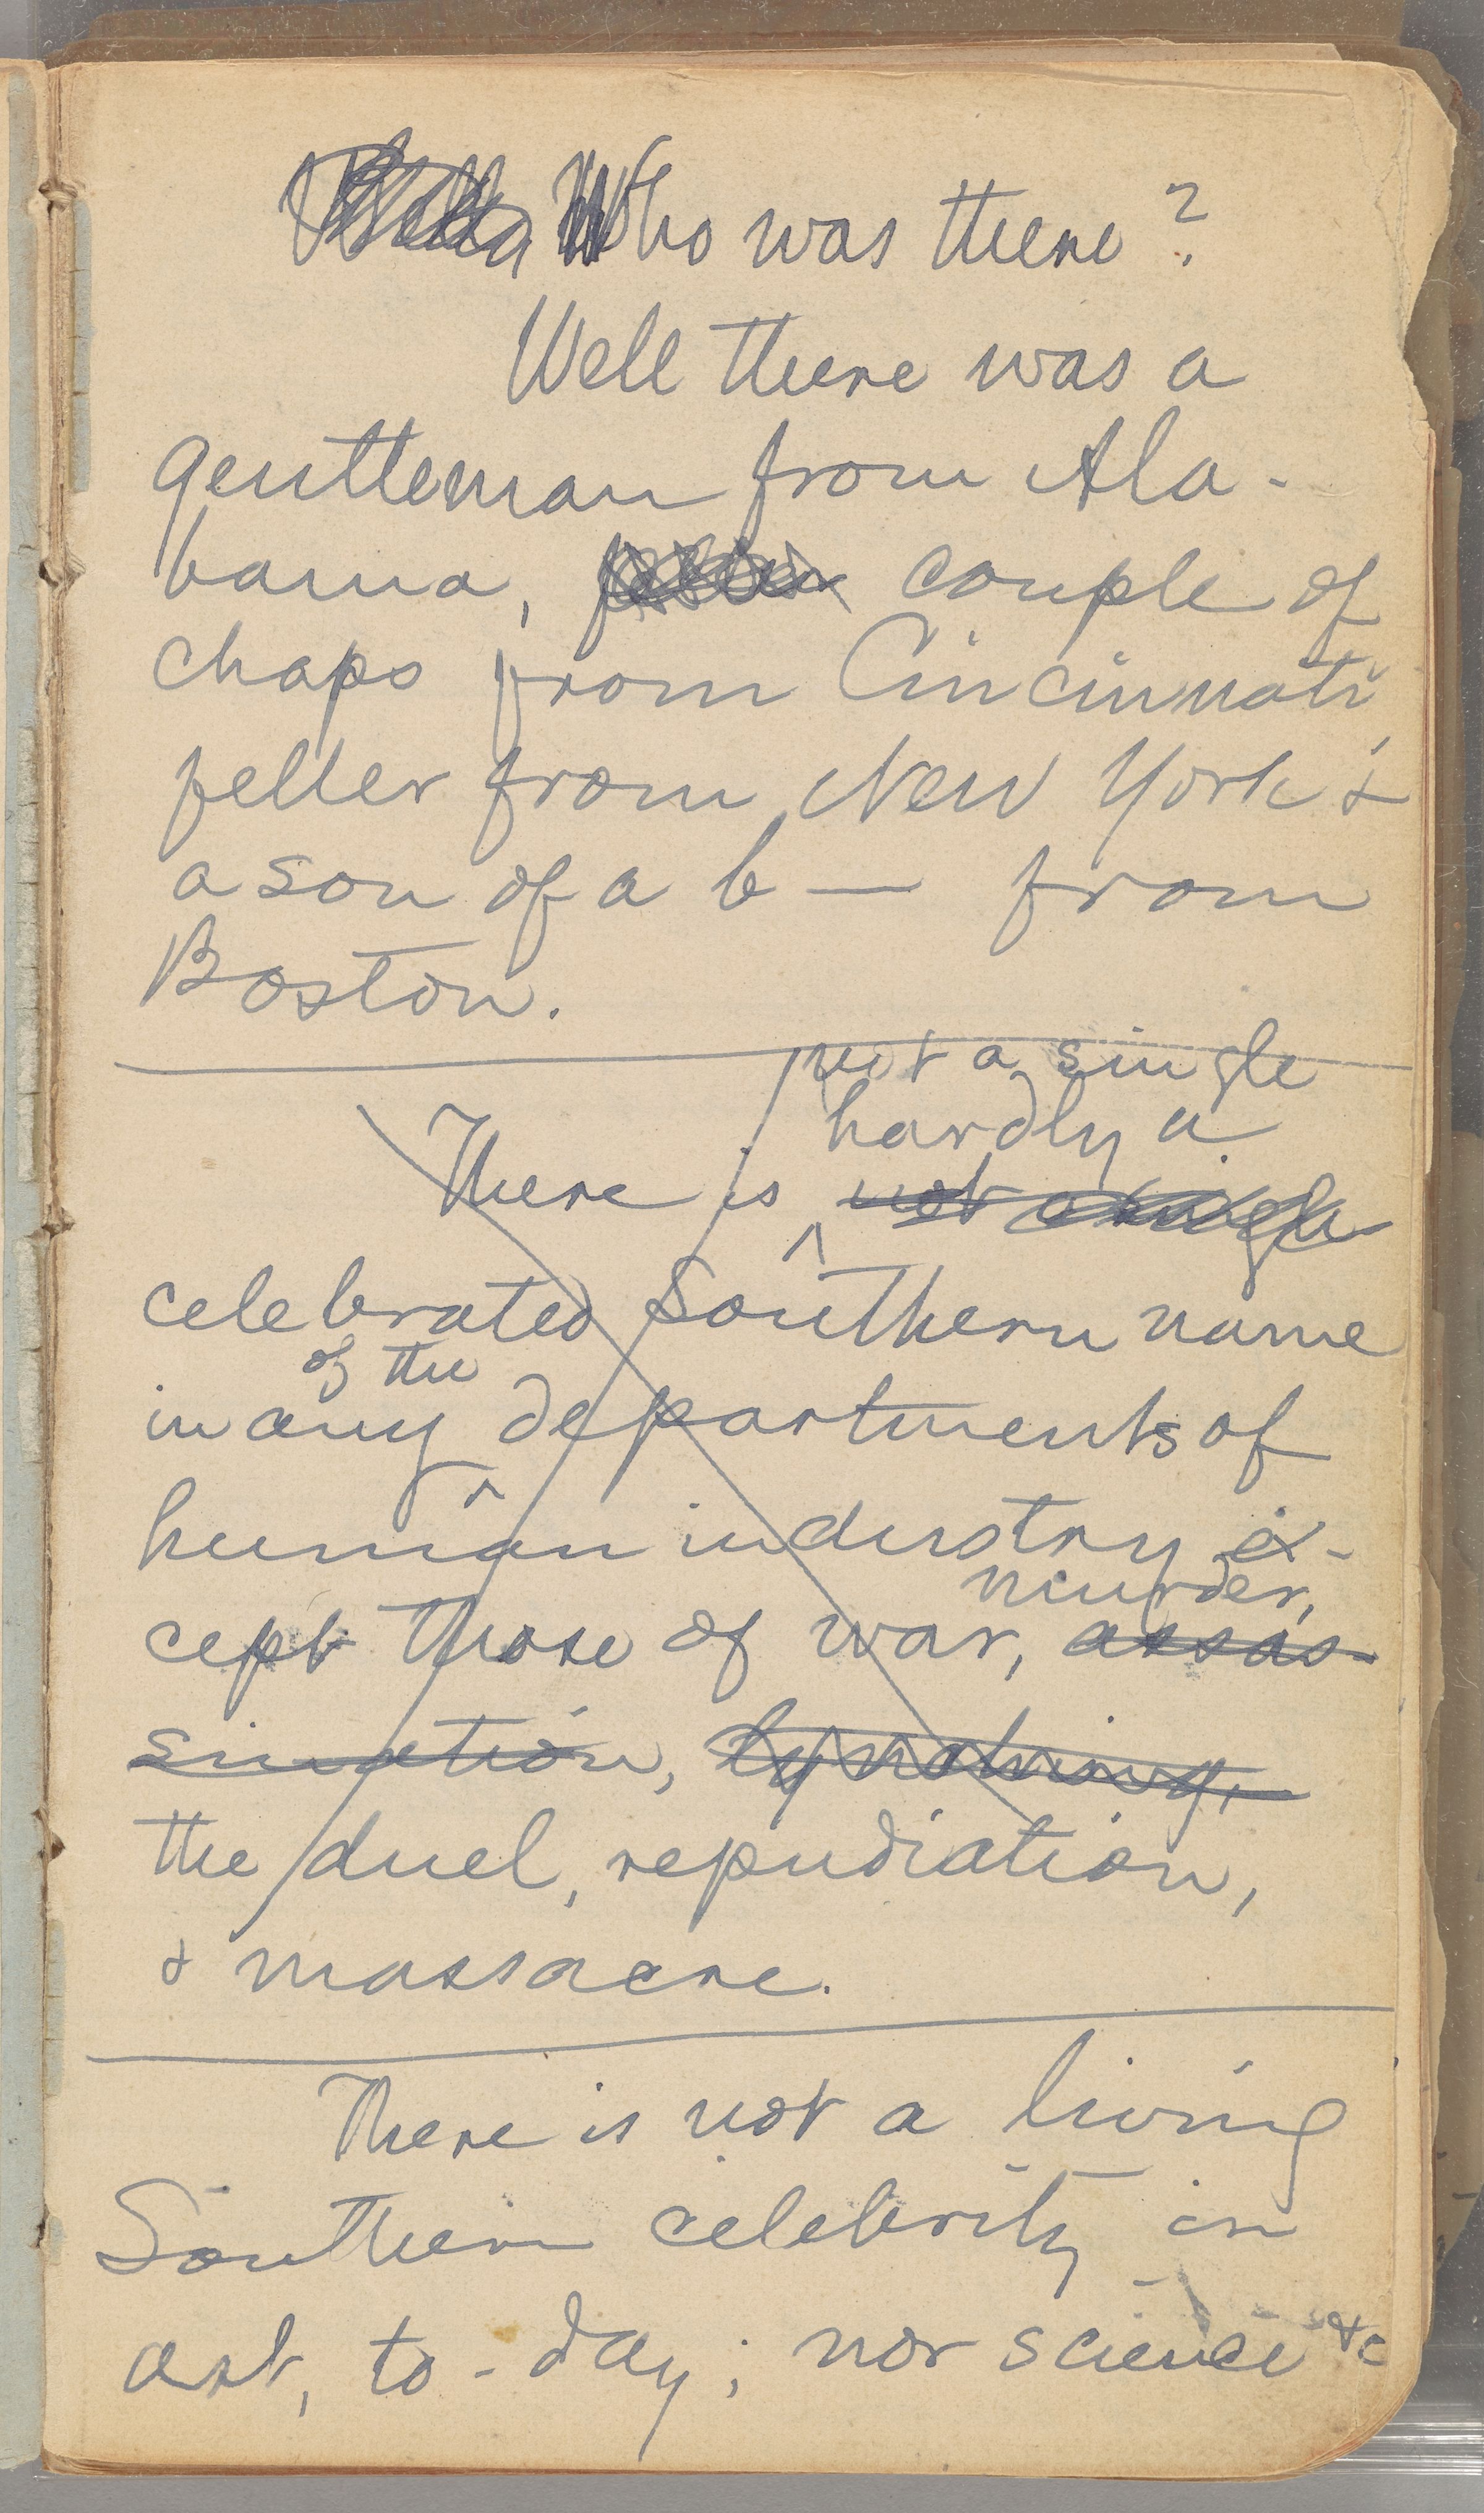 Who was there?
Well there was a
gentleman from Ala-
bama, feller couple of
chaps from Cincinnati
feller from New York &
a son of a b — from
Boston.
not a single
hardly a
There is not a single
celebrated Southern name
of the
in any departments of
human industry ex-
murder,
cept those of war, assas-
sination, lynching,
the duel, repudiation,
& massacre.
There is not a living
Southern celebrity in
art, to-day; nor science &c